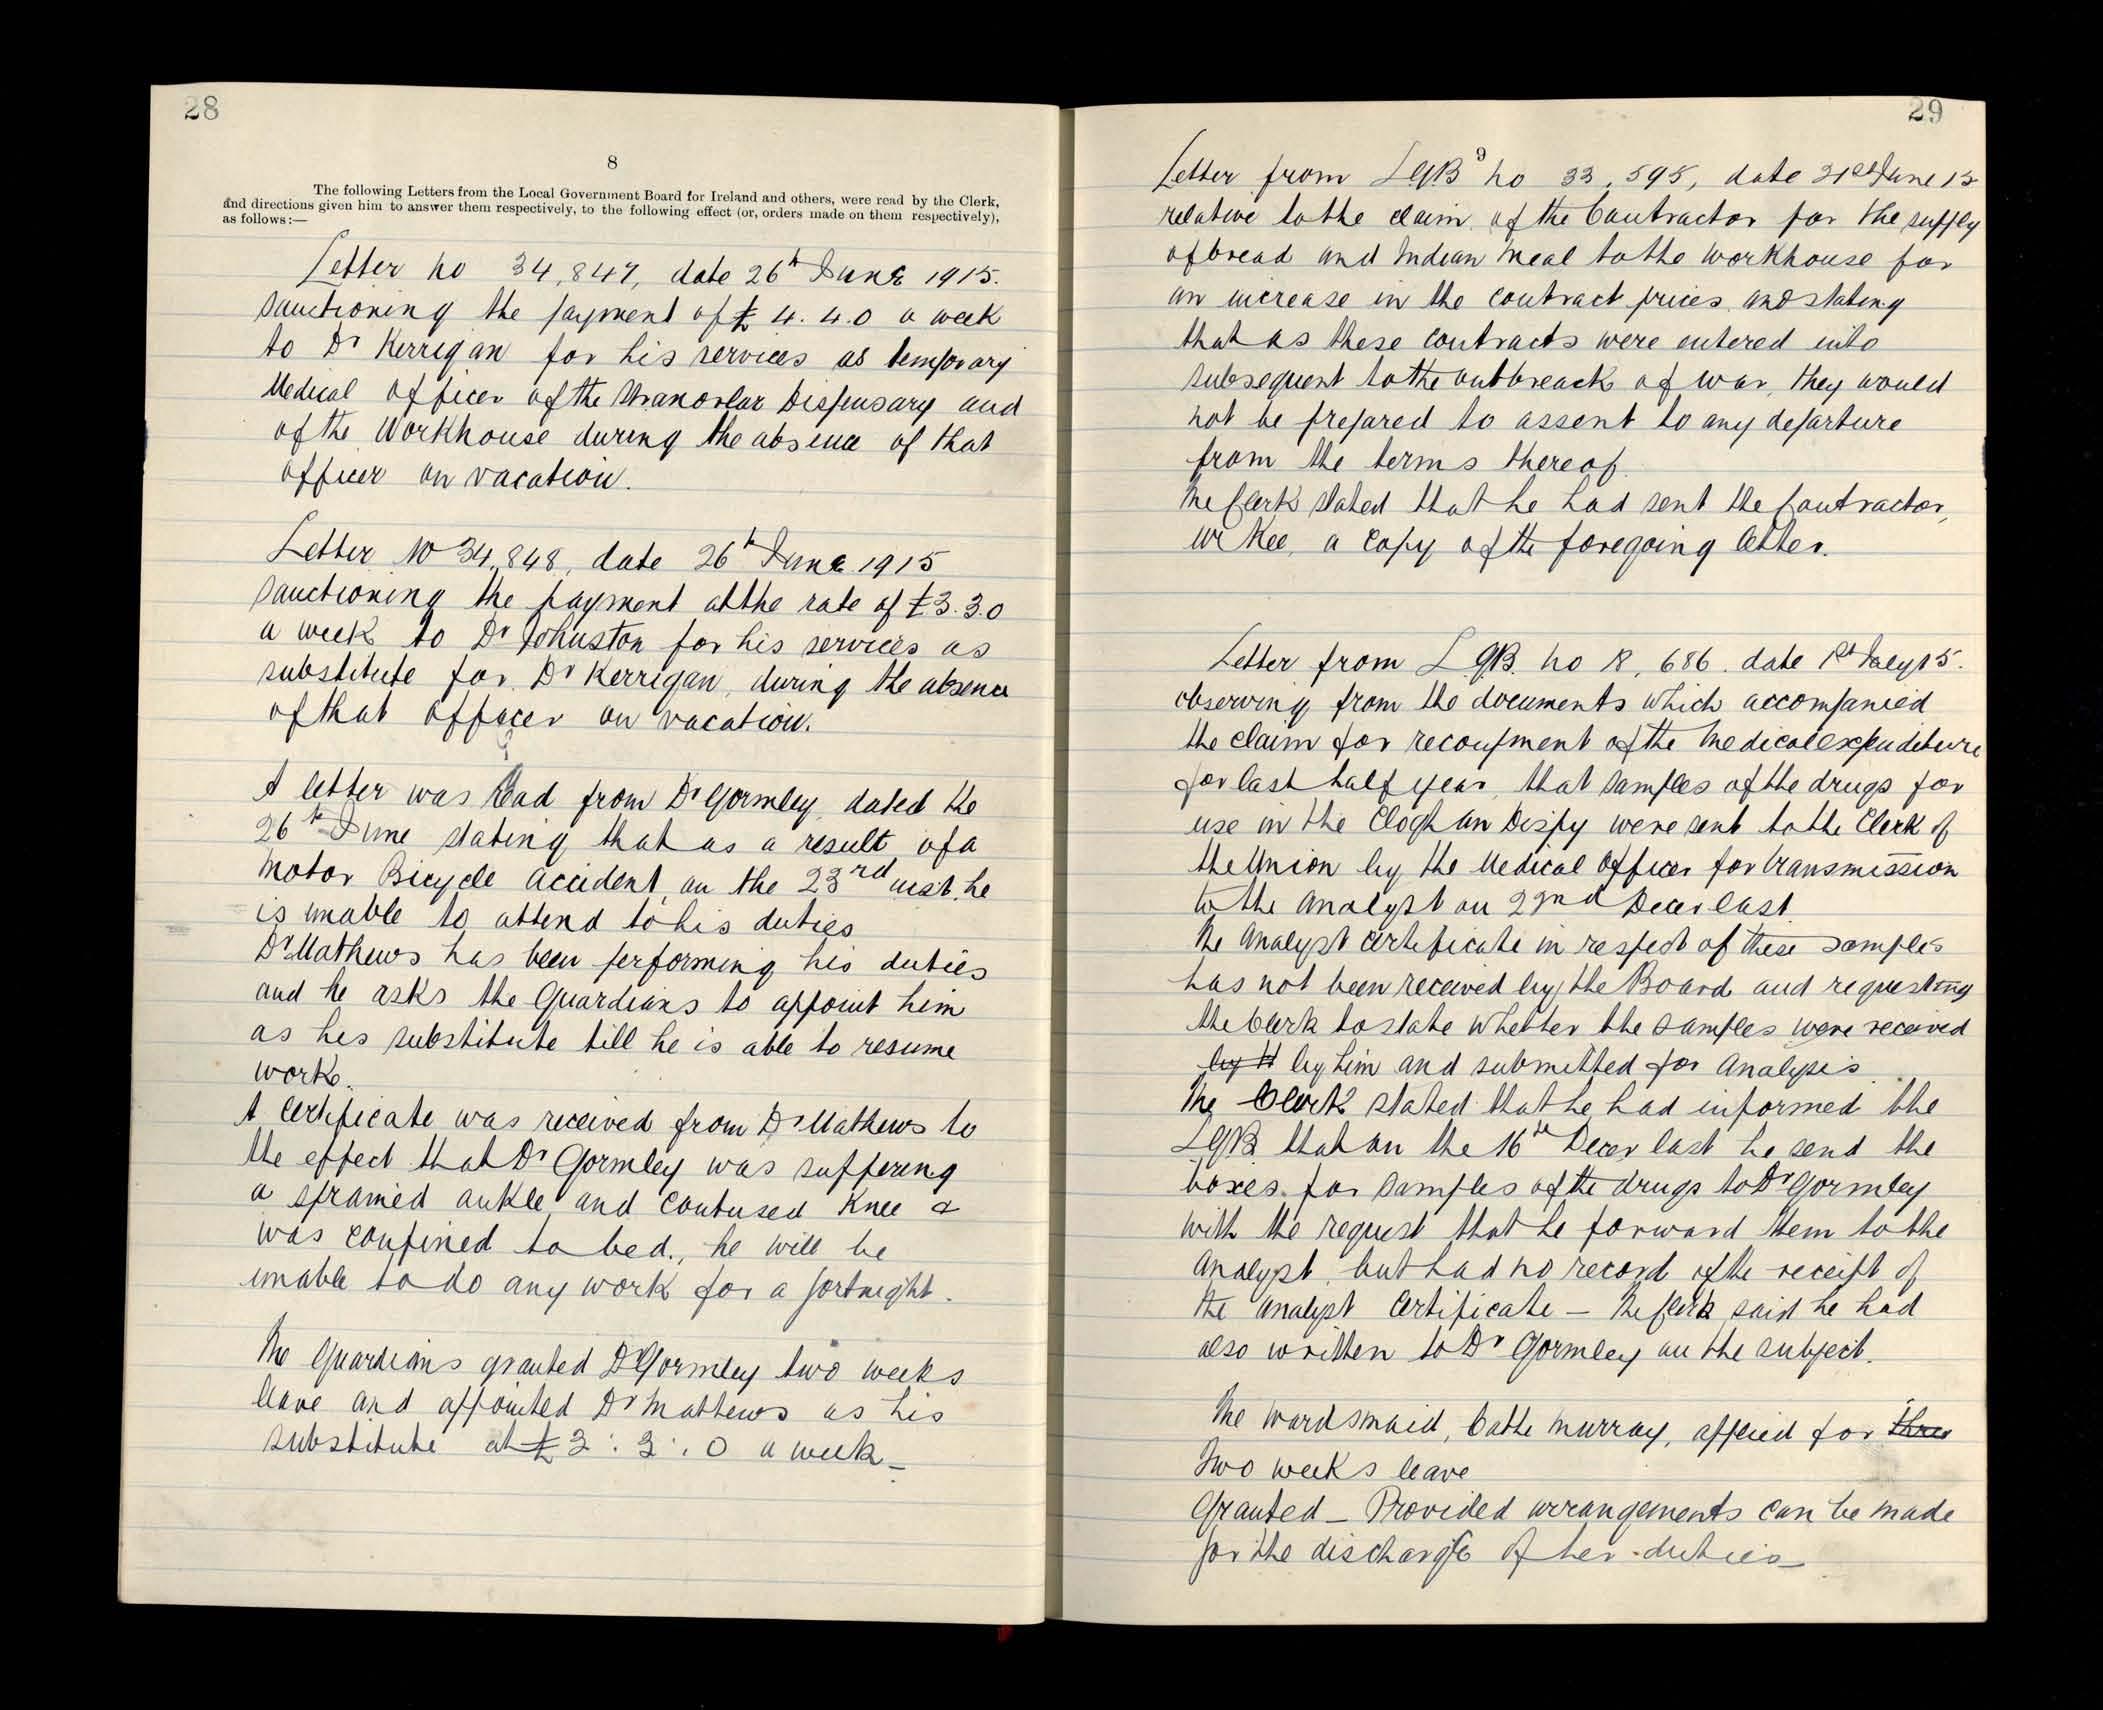 28
8
The following Letters from the Local Government Board for Ireland and others, were read by the Clerk,
and directions given him to answer them respectively, to the following effect (or, orders made on them respectively),
as follows:—
Letter no 34,847, date 26th June 1915.
sanctioning the payment of £4.4.0 a week
to Dr Kerrigan for his services as temporary
Medical Officer of the Stranorlar Dispensary and
of the Workhouse during the absence of that
officer on vacation.
Letter No 34,848, date 26th June 1915
sanctioning the payment at the rate of £3.3.0
a week to Dr Johnston for his services as
substitute for Dr Kerrigan, during the absence
of that officer on vacation.
A letter was read from Dr Gormley, dated the
26th June stating that as a result of a
Motor Bicycle accident, on the 23rd inst. he
is unable to attend to his duties
Dr Mathews has been performing his duties
and he asks the Guardians to appoint him
as his substitute till he is able to resume
work.
A Certificate was received from Dr Mathews to
the effect that Dr Gormley was suffering
a sprained ankle and contused Knee &
was confined to bed, he will be
unable to do any work for a fortnight.
The Guardians granted Dr Gormley two weeks
leave and appointed Dr Mathews as his
substitute at £3:3:0 a week_
29
9
Letter from LGB no 33,595, date 21st June 15
relative to the claim of the Contractor for the supply
of bread and Indian Meal to the Workhouse for
an increase in the contract prices and stating
that as these contracts were entered into
subsequent to the outbreack of war, they would
not be prepared to assent to any departure
from the terms thereof.
The Clerk stated that he had sent the Contractor,
Mr Kee, a copy of the foregoing letter.
Letter from L.G.B. no 18,686. date 1st July 15.
observing from the documents which accompanied
the claim for recoupment of the Medical expenditure
for last half year, that samples of the drugs for
use in the Cloghan Dispy were sent to the Clerk of
the Union by the Medical Officer for transmission
to the Analyst on 22nd Decer last.
The Analyst certificate in respect of these samples
has not been received by the Board and requesting
the Clerk to state whether the samples were received
by H by him and submitted for Analysis
The Clerk stated that he had informed the
LGB that on the 16th Decer last he send the
boxes for samples of the drugs to Dr Gormley
with the request that he forward them to the
Analyst, but had no record of the receipt of
the Analyst Certificate — The Clerk said he had
also written to Dr Gormley on the subject.
The Wardsmaid, Cathe Murray, applied for three
two weeks leave
Granted — Provided arrangements can be made
for the discharge of her duties—